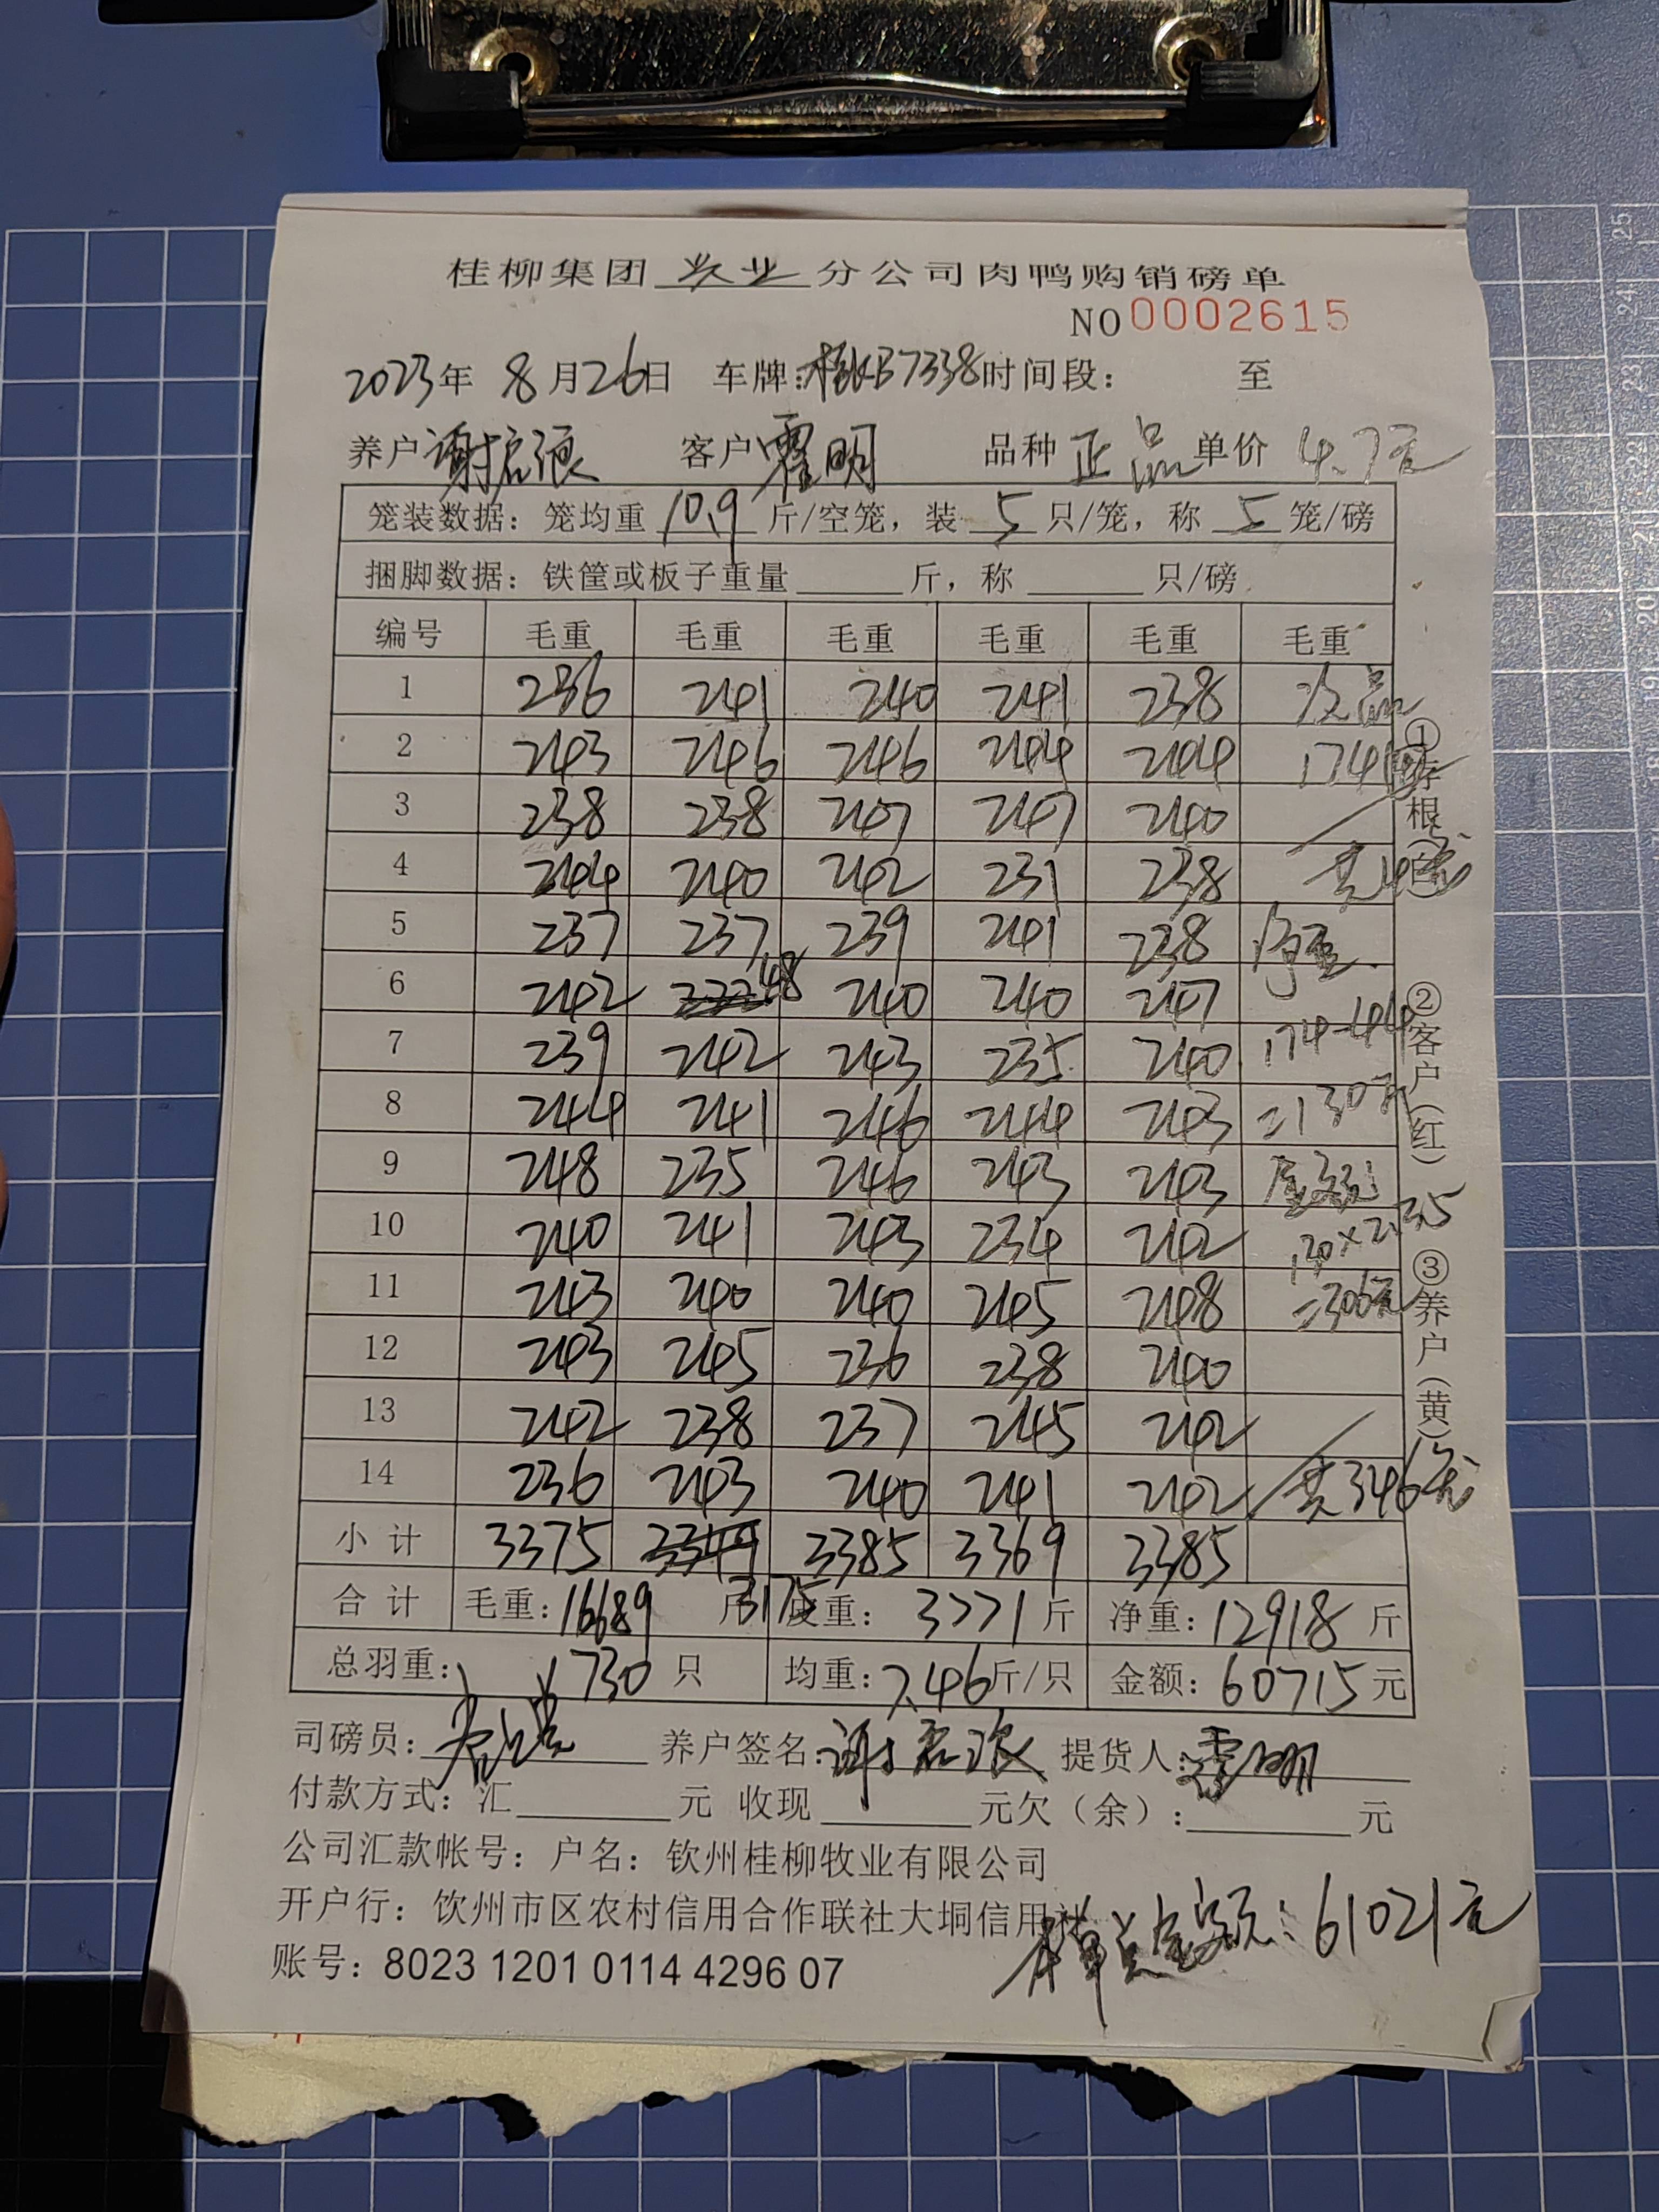 桂柳集团 兴业 分公司肉鸭购销磅单
NO 0002615
2023年 8月26日 车牌:桂KB7338 时间段: 至
养户 谢启浪 客户 霍明 品种 正品 单价 4.7元
笼装数据:笼均重 10.9 斤/空笼,装 5 只/笼,称 5 笼/磅
捆脚数据:铁筐或板子重量 斤,称 只/磅
编号 毛重 毛重 毛重 毛重 毛重 毛重
1 236 241 240 241 238 次品
2 243 246 246 244 244 174
3 238 238 247 247 240
4 244 240 242 231 238 共
5 237 237 239 241 238 净重
6 242 48 240 240 247
7 239 242 243 235 240 174-44
8 244 241 246 244 243 =130斤
9 248 235 246 243 243 金额:
10 240 241 243 234 242 130×2.35
11 243 240 240 245 248 =306元
12 243 245 236 238 240
13 242 238 237 245 242
14 236 243 240 241 242 共346笼
小计 3375 3385 3369 3385
3175
合计 毛重:16689 斤 皮重:3771斤 净重:12918斤
总羽重: 1730只 均重:7.46斤/只 金额:60715元
司磅员: 养户签名:谢启浪 提货人:霍明
付款方式:汇 元 收现 元欠(余): 元
公司汇款帐号:户名:钦州桂柳牧业有限公司
开户行:钦州市区农村信用合作联社大垌信用社
本单总金额:61021元
账号:8023 1201 0114 4296 07
①存根(白)
②客户(红)
③养户(黄)